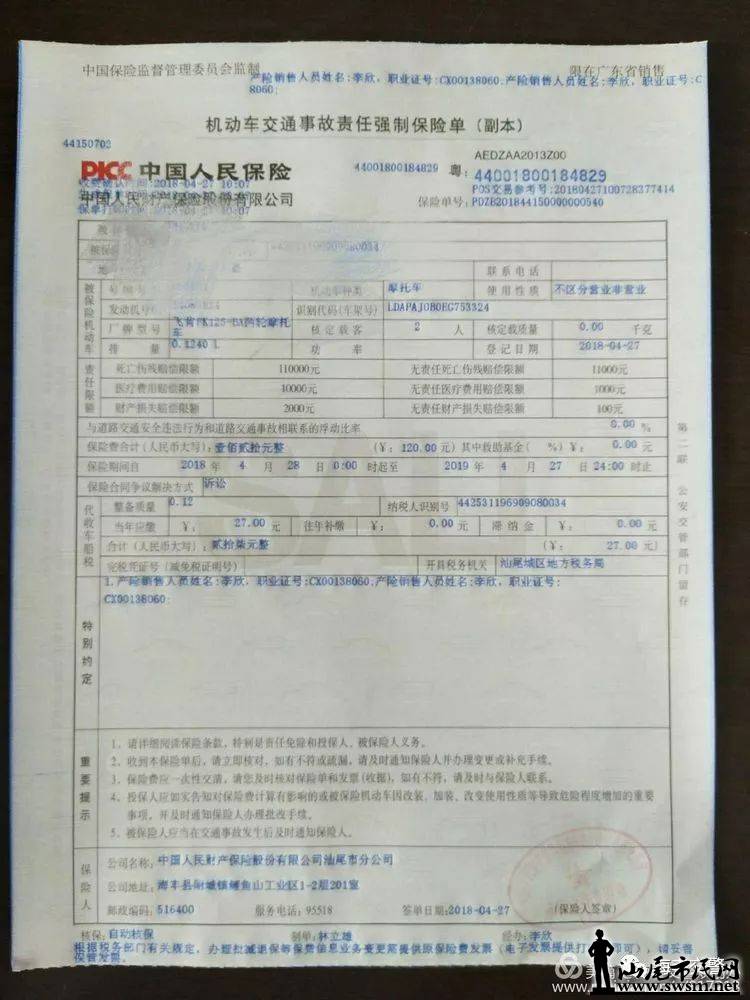 中国保险监督管理委员会监制
限在广东省销售
产险销售人员姓名:李欣，职业证号:CX00138060;产险销售人员姓名:李欣，职业证号:C
8060;
机动车交通事故责任强制保险单（副本）
44150702
AEDZAA2013Z00
PICC 中国人民保险
44001800184829 粤: 44001800184829
收费确认时间:2018-04-27 10:07
POS交易参考号:20180427100728377414
中国人民财产保险股份有限公司
保险单号: PDZB201844150000000540
联系电话
被保险机动车
号码号
机动车种类 摩托车 使用性质 不区分营业非营业
发动机号
识别代码(车架号) LDAPAJOB0EG753324
厂牌型号 核定载客 2 人 核定载质量 0.00 千克
排量 0.1240 L 功率 登记日期 2018-04-27
责任限额
死亡伤残赔偿限额 110000元 无责任死亡伤残赔偿限额 11000元
医疗费用赔偿限额 10000元 无责任医疗费用赔偿限额 1000元
财产损失赔偿限额 2000元 无责任财产损失赔偿限额 100元
与道路交通安全违法行为和道路交通事故相联系的浮动比率 0.00 %
保险费合计（人民币大写）: 壹佰贰拾元整 （¥: 120.00 元）其中救助基金（ %）¥: 0.00 元
保险期间自 2018 年 4 月 28 日 0:00 时起至 2019 年 4 月 27 日 24:00 时止
保险合同争议解决方式 诉讼
代收车船税
整备质量 0.12 纳税人识别号 442531196909080034
当年应缴 ¥: 27.00 元 往年补缴 ¥: 0.00 元 滞纳金 ¥: 0.00 元
合计（人民币大写）: 贰拾柒元整 （¥: 27.00 元）
完税凭证号（减免税证明号） 开具税务机关 汕尾城区地方税务局
特别约定
1.产险销售人员姓名:李欣，职业证号:CX00138060;产险销售人员姓名:李欣，职业证号:
CX00138060;
第二联 公安交管部门留存
重要提示
1、请详细阅读保险条款，特别是责任免除和投保人、被保险人义务。
2、收到本保险单后，请立即核对，如有不符或疏漏，请及时通知保险人并办理变更或补充手续。
3、保险费应一次性交清，请您及时核对保险单和发票(收据)，如有不符，请及时与保险人联系。
4、投保人应如实告知对保险费计算有影响的或被保险机动车因改装、加装、改变使用性质等导致危险程度增加的重要
事项，并及时通知保险人办理批改手续。
5、被保险人应当在交通事故发生后及时通知保险人。
保险人
公司名称: 中国人民财产保险股份有限公司汕尾市分公司
公司地址: 海丰县附城镇鲤鱼山工业区1-2层201室
邮政编码: 516400 服务电话: 95518 签单日期: 2018-04-27 （保险人签章）
核保: 自动核保 制单: 林立雄 经办: 李欣
根据税务部门有关规定，办理批减退保等保费信息业务变更需提供原保险费发票（电子发票提供打印件即可），请妥善
保管发票。
汕尾市民网
www.swsm.net